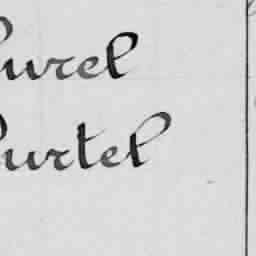 urel
urtel